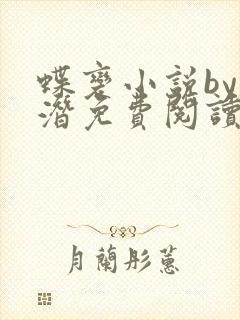 蝶变小说by
潜免费阅读
月兰彤蕙